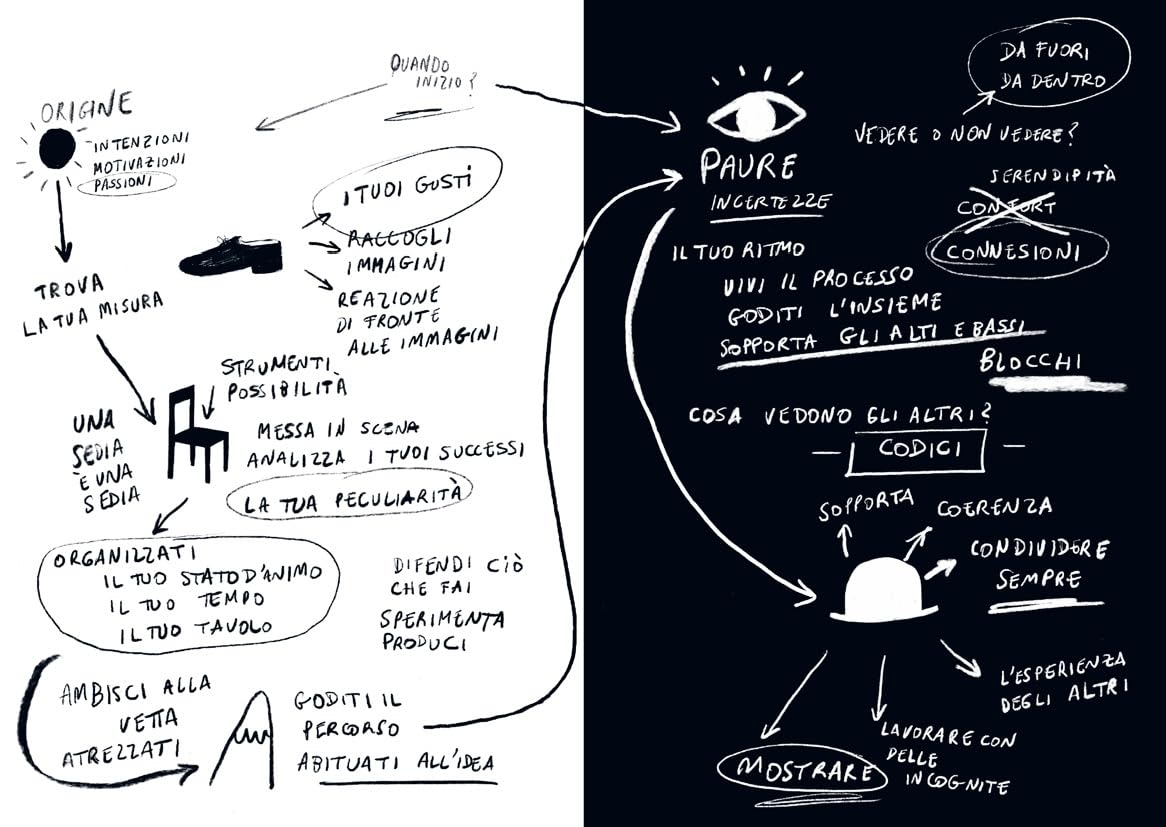 QUANDO
INIZIO?
ORIGINE
INTENZIONI
MOTIVAZIONI
PASSIONI
I TUOI GUSTI
RACCOGLI
IMMAGINI
REAZIONE
DI FRONTE
ALLE IMMAGINI
TROVA
LA TUA MISURA
STRUMENTI
POSSIBILITÀ
UNA
SEDIA
È UNA
SEDIA
MESSA IN SCENA
ANALIZZA I TUOI SUCCESSI
LA TUA PECULIARITÀ
ORGANIZZATI
IL TUO STATO D'ANIMO
IL TUO TEMPO
IL TUO TAVOLO
DIFENDI CIÒ
CHE FAI
SPERIMENTA
PRODUCI
AMBISCI ALLA
VETTA
ATREZZATI
GODITI IL
PERCORSO
ABITUATI ALL'IDEA
DA FUORI
DA DENTRO
VEDERE O NON VEDERE?
PAURE
INCERTEZZE
SERENDIPITÀ
CONFORT
CONNESIONI
IL TUO RITMO
VIVI IL PROCESSO
GODITI L'INSIEME
SOPPORTA GLI ALTI E BASSI
BLOCCHI
COSA VEDONO GLI ALTRI?
— CODICI —
SOPPORTA
COERENZA
CONDIVIDERE
SEMPRE
L'ESPERIENZA
DEGLI ALTRI
LAVORARE CON
DELLE
INCOGNITE
MOSTRARE